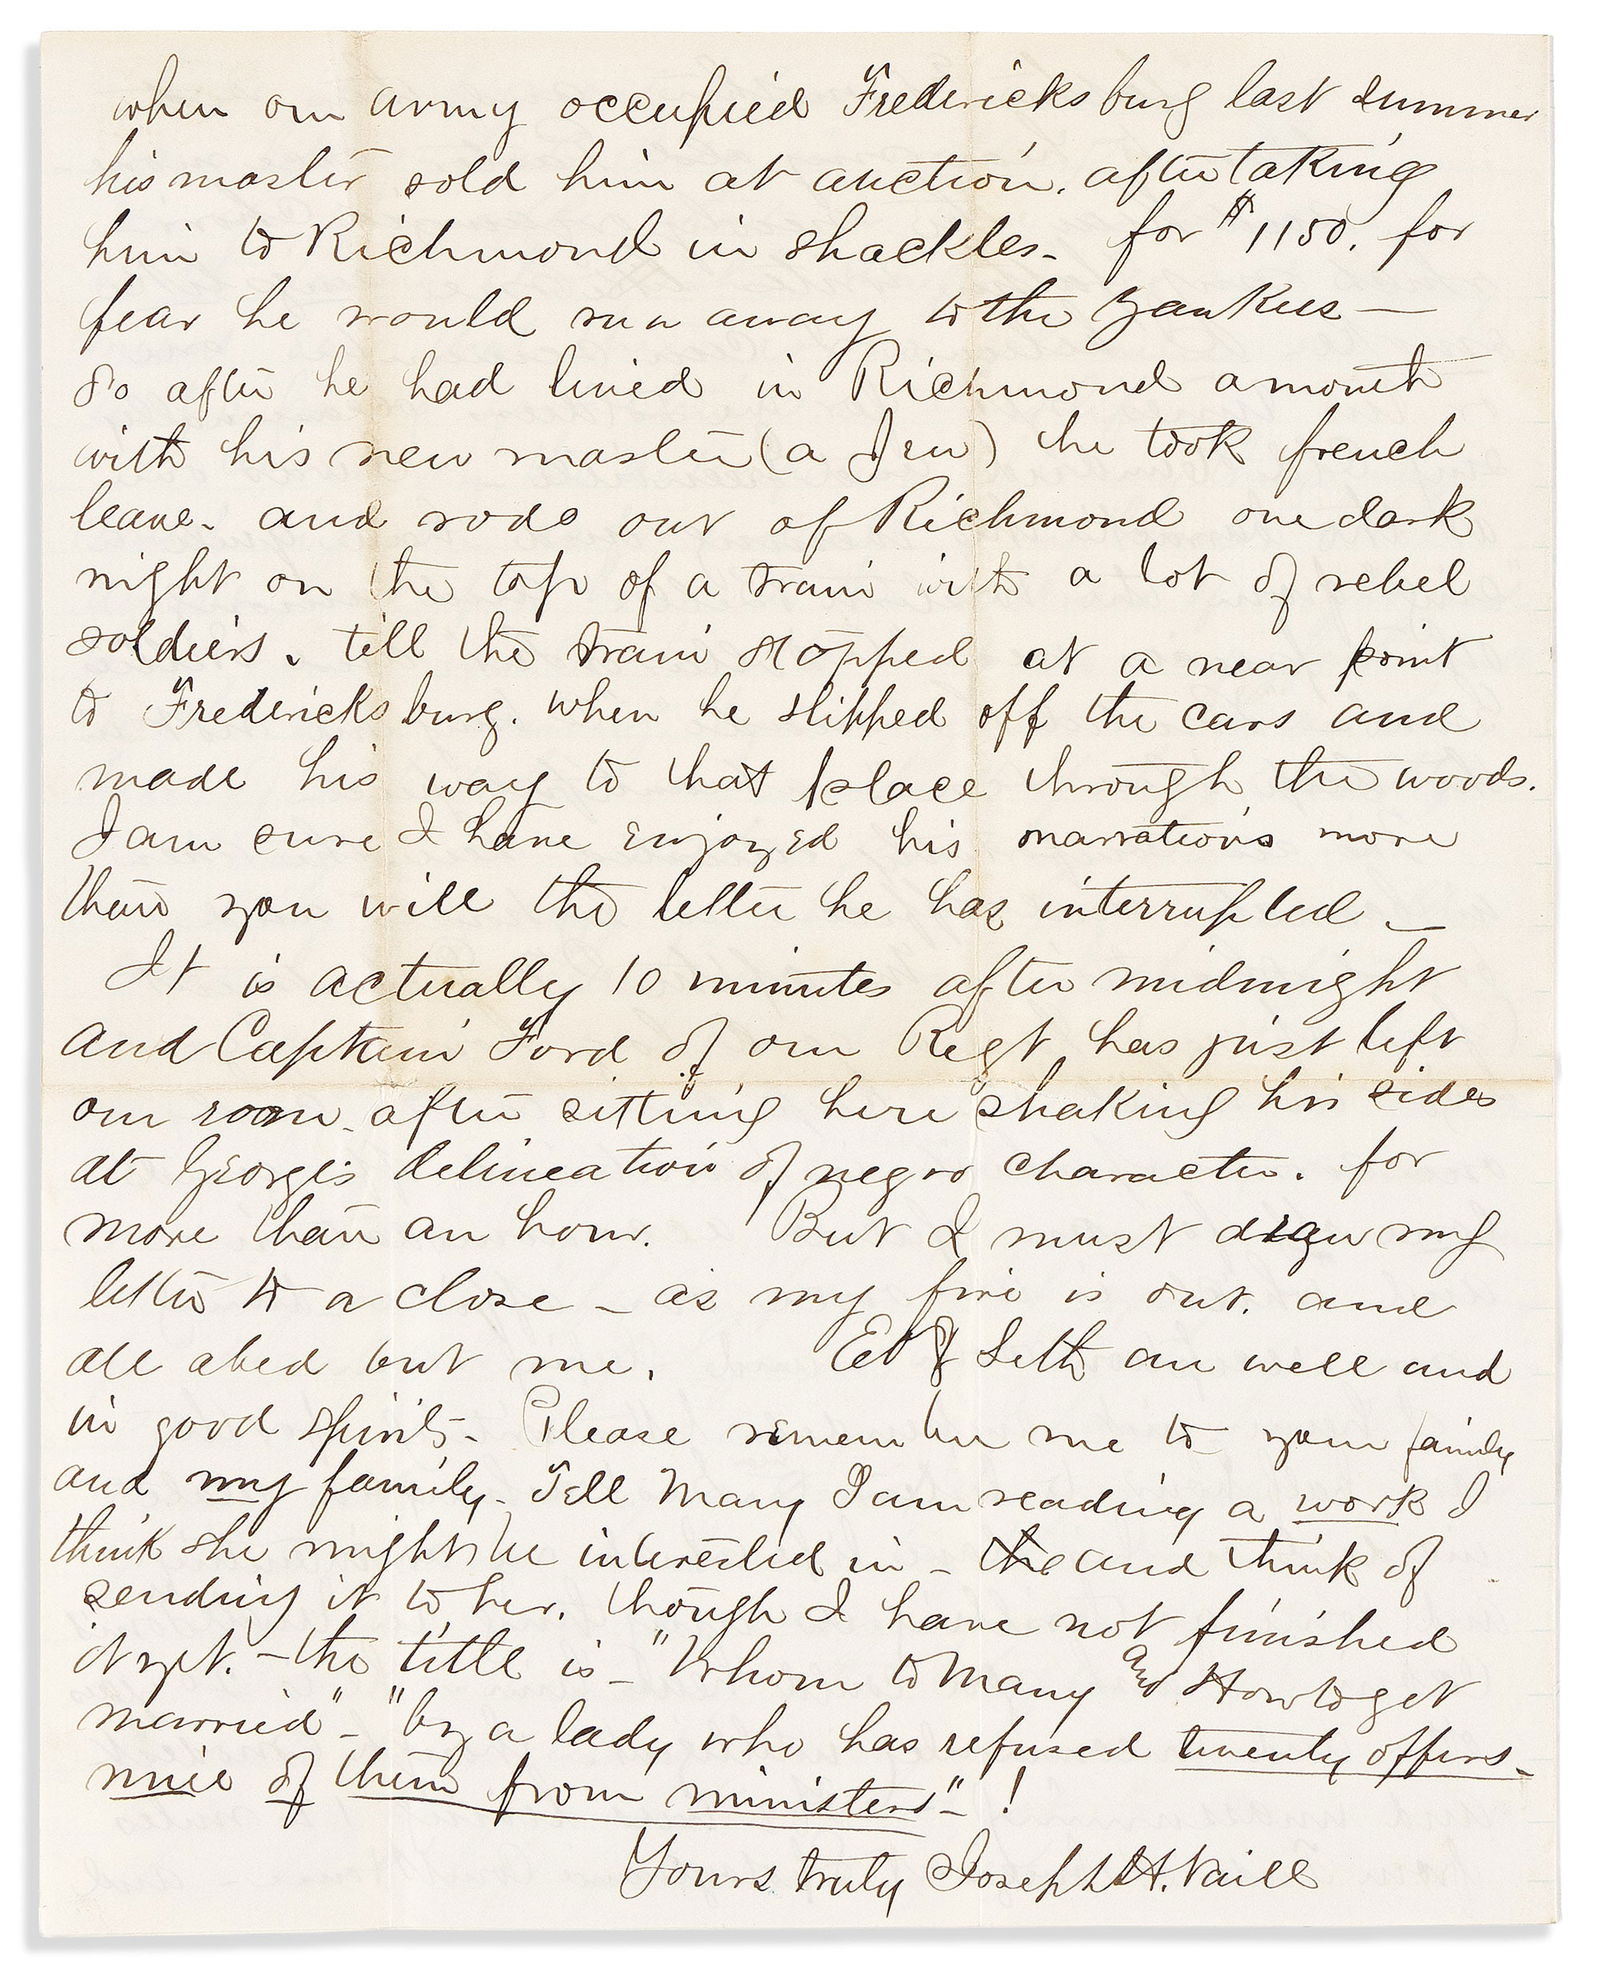 when our army occupied Fredericksburg last summer
his master sold him at auction. after taking
him to Richmond in shackles – for $1150. for
fear he would run away to the Yankees —
So after he had lived in Richmond a month
with his new master (a Jew) he took french
leave – and rode out of Richmond one dark
night on the top of a train with a lot of rebel
soldiers. till the train stopped at a near point
to Fredericksburg. when he slipped off the cars and
made his way to that place through the woods.
I am sure I have enjoyed his narrations more
than you will the letter he has interrupted –
It is actually 10 minutes after midnight
and Captain Ford of our Regt has just left
our room – after sitting here shaking his sides
at George's delineation of negro character. for
more than an hour. But I must draw my
letter to a close – as my fire is out. and
all abed but me. Ed & Seth are well and
in good spirits – Please remember me to your family
and my family – Tell Mary I am reading a work I
think she might be interested in – the and think of
sending it to her. though I have not finished
it yet. – the title is – "Whom to Marry and How to get
married" – "by a lady who has refused twenty offers –
nine of them from ministers" – !
Yours truly Joseph H. Vaill